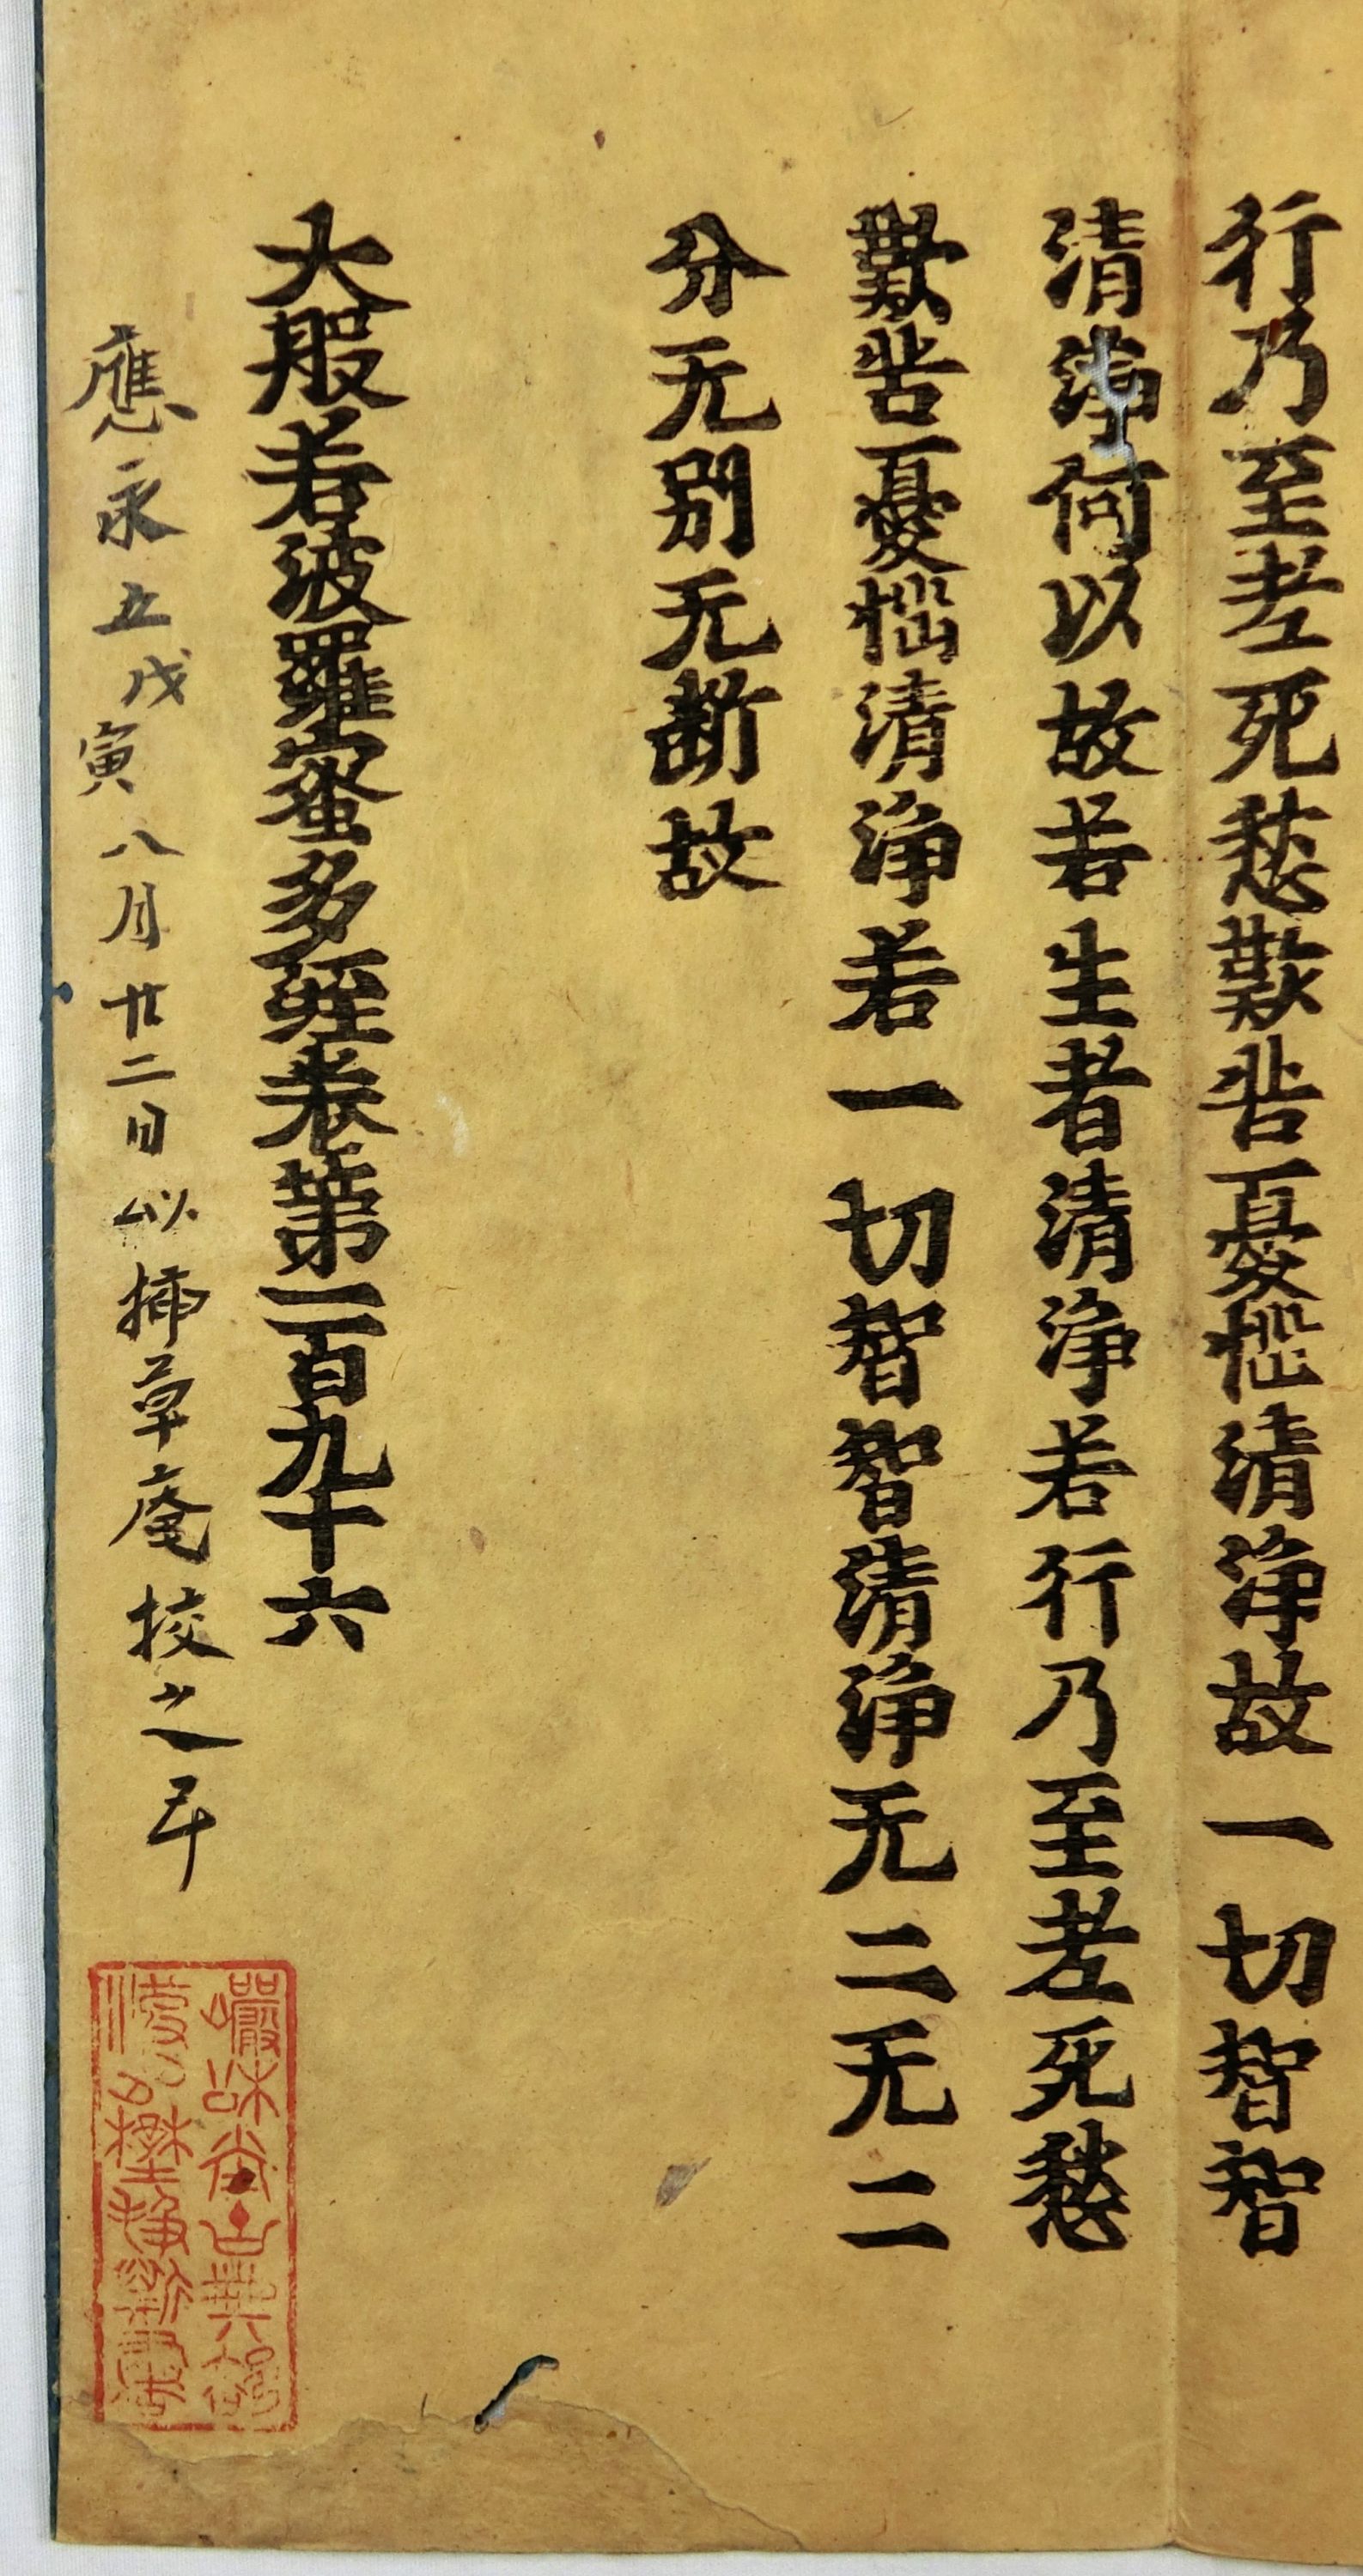 行乃至老死愁歎苦憂惱清淨故一切智智
清淨何以故若生者清淨若行乃至老死愁
歎苦憂惱清淨若一切智智清淨无二无二
分无别无断故
大般若波羅蜜多經卷第一百九十六
應永五戊寅八月廿二日以挿草庵挍之了